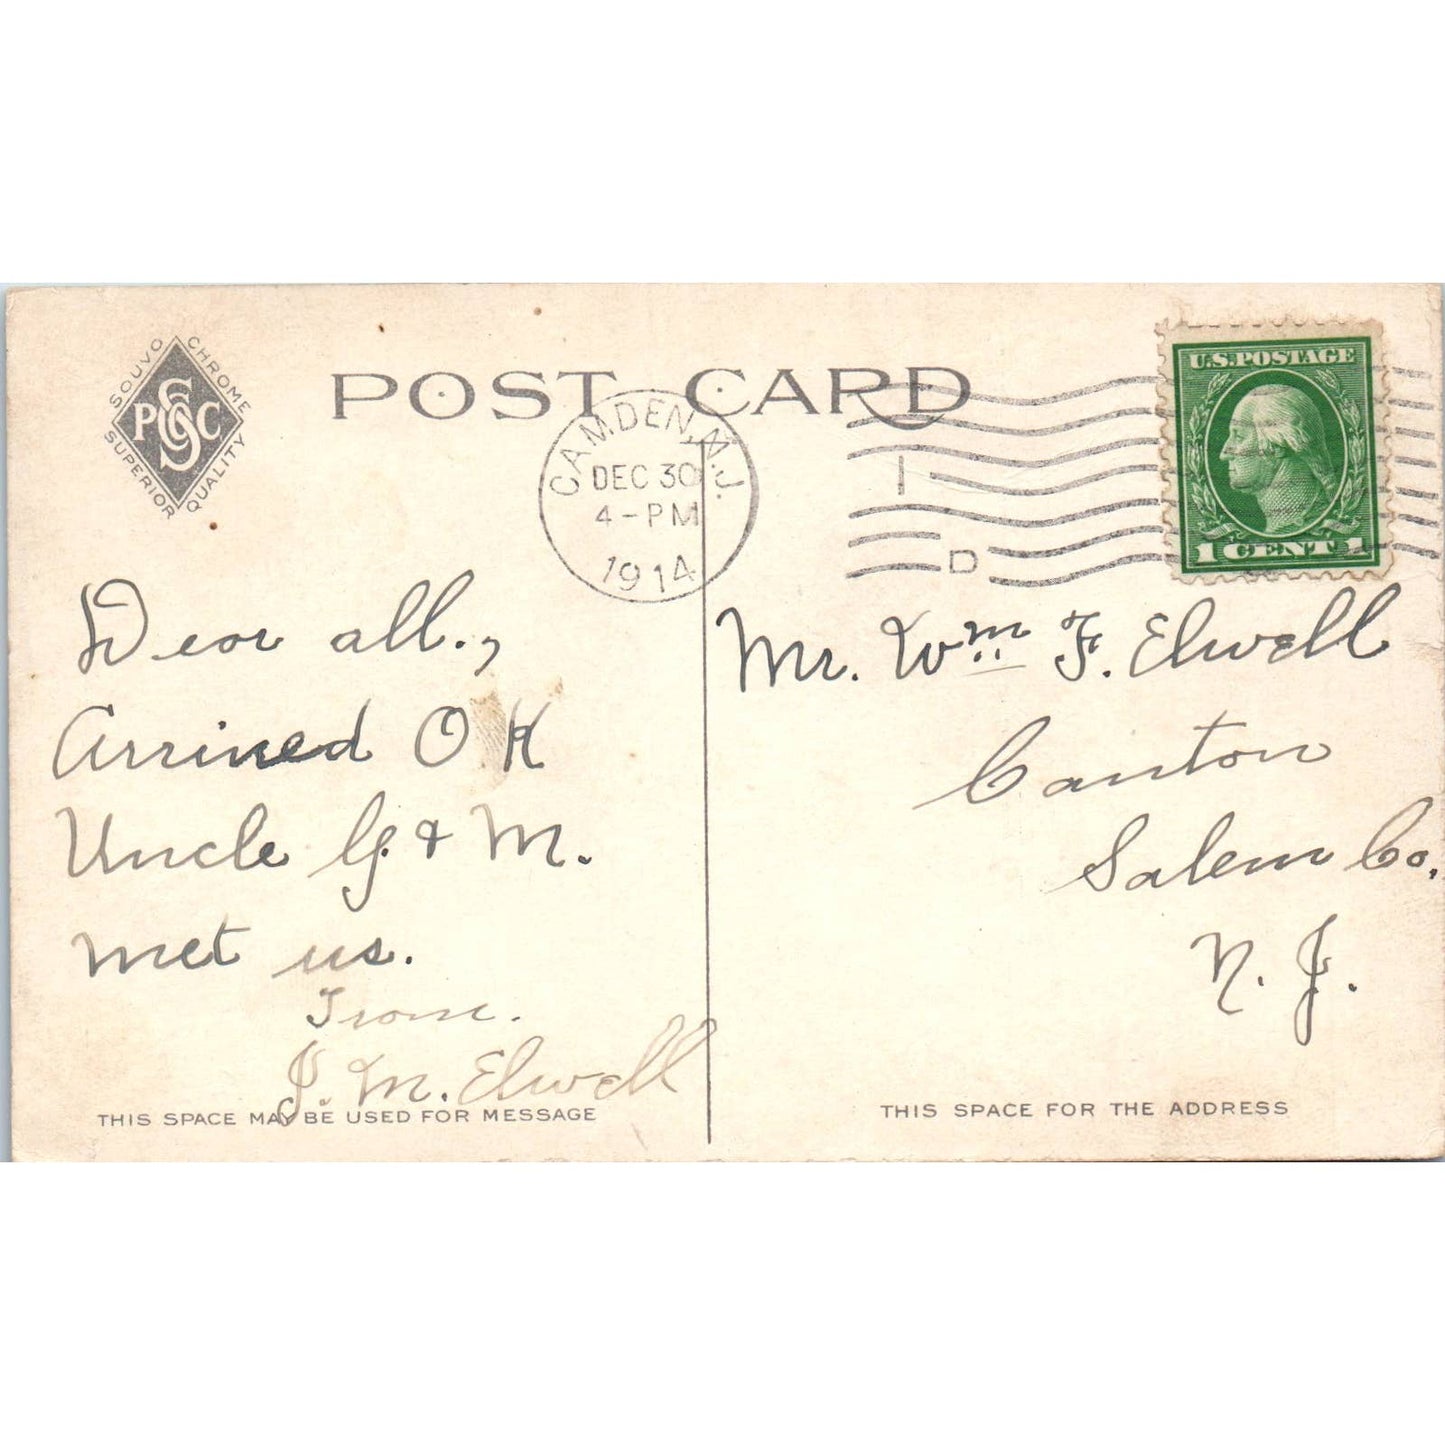 SOUVO CHROME
PSC&C
SUPERIOR QUALITY
POST CARD
CAMDEN, N.J.
DEC 30
4-PM
1914
1
D
U.S. POSTAGE
1 CENT 1
Dear all.,
Arrived O.K
Uncle G. & M.
met us.
From.
J. M. Elwell
Mr. Wm F. Elwell
Canton
Salem Co,
N. J.
THIS SPACE MAY BE USED FOR MESSAGE
THIS SPACE FOR THE ADDRESS